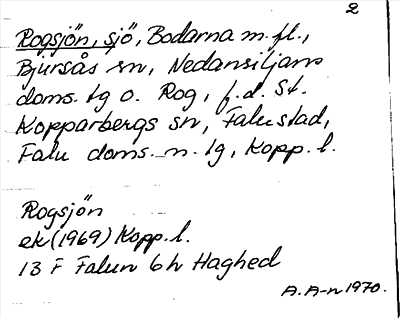 2
Rogsjön, sjö, Bodarna m. fl.,
Bjursås sn, Nedansiljans
doms. tg o. Rog, f. d. St.
Kopparbergs sn, Falu stad,
Falu doms. n. tg, Kopp. l.
Rogsjön
ek (1969) Kopp. l.
13 F Falun 6 h Haghed
A. A-n 1970.